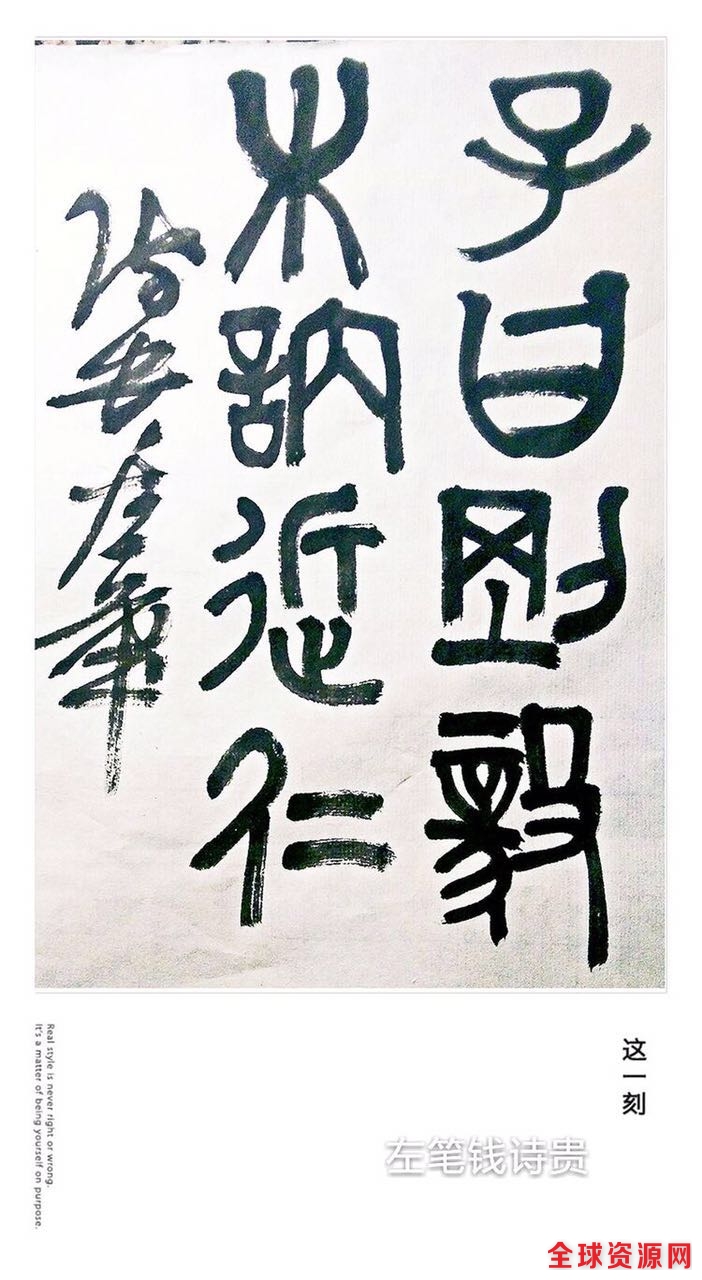 子曰剛毅
木訥近仁
左筆
这一刻
Real style is never right or wrong.
It's a matter of being yourself on purpose.
左笔钱诗贵
全球资源网